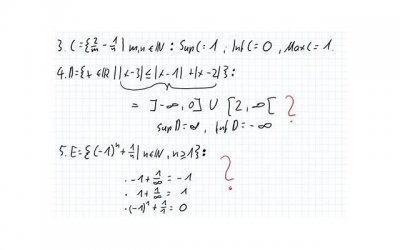 3. C = {2/m - 1/n | m,n ∈ ℕ : Sup C = 1, Inf C = 0, Max C = 1.
4. D = {x ∈ ℝ | |x-3| ≤ |x-1| + |x-2|} :
= ]-∞, 0] ∪ [2, ∞[ ?
sup D = ∞, inf D = -∞
5. E = {(-1)ⁿ + 1/n | n ∈ ℕ, n ≥ 1} :
· -1 + 1/∞ = -1 ?
· 1 + 1/∞ = 1
· (-1)¹ + 1/1 = 0